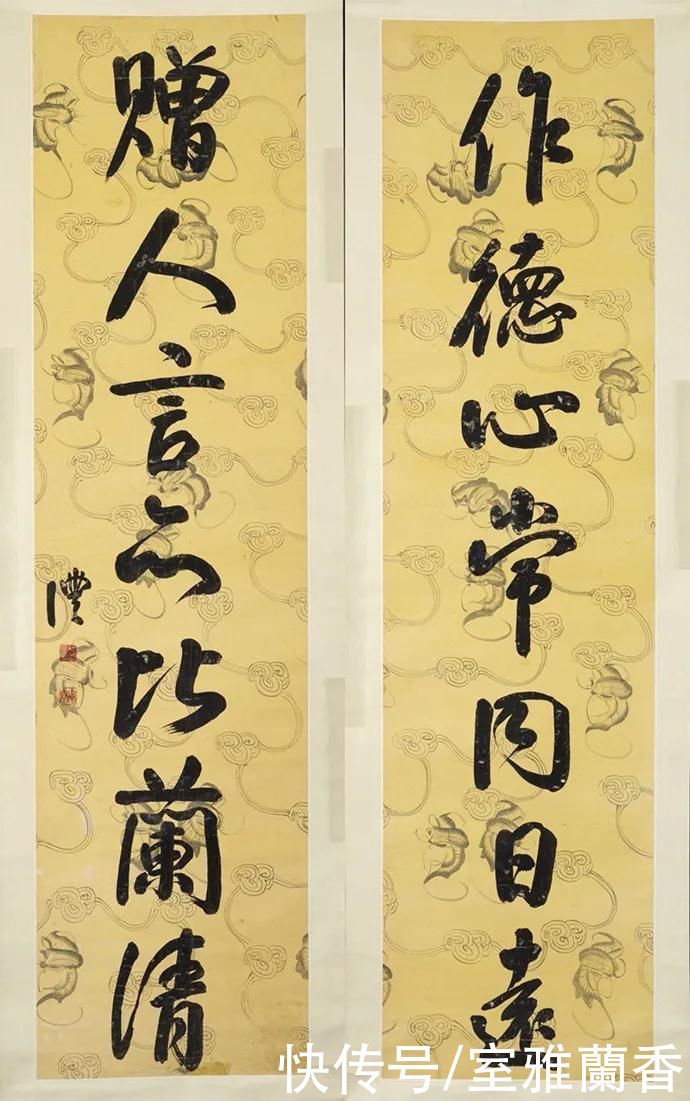 作德心常同日遠
贈人言亦比蘭清
澧
快传号/室雅蘭香